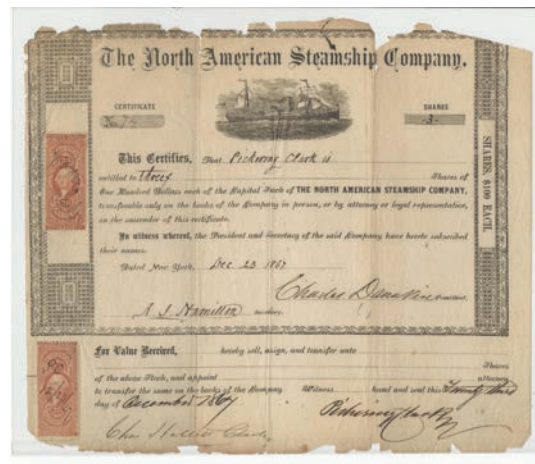 The North American Steamship Company.
CERTIFICATE
SHARES
No. 74
-3-
This Certifies, That Pickering Clark is
entitled to three Shares of
One Hundred Dollars each of the Capital Stock of THE NORTH AMERICAN STEAMSHIP COMPANY,
transferable only on the books of the Company in person, or by attorney or legal representative,
on the surrender of this certificate.
In witness whereof, the President and Secretary of the said Company have hereto subscribed
their names.
Dated New York, Dec. 23 1867
Charles Dana
SHARES, $100 EACH.
For Value Received, hereby sell, assign, and transfer unto
Shares
of the above Stock, and appoint attorney
to transfer the same on the books of the Company Witness hand and seal this Twenty third
day of December 1867
Pickering Clark